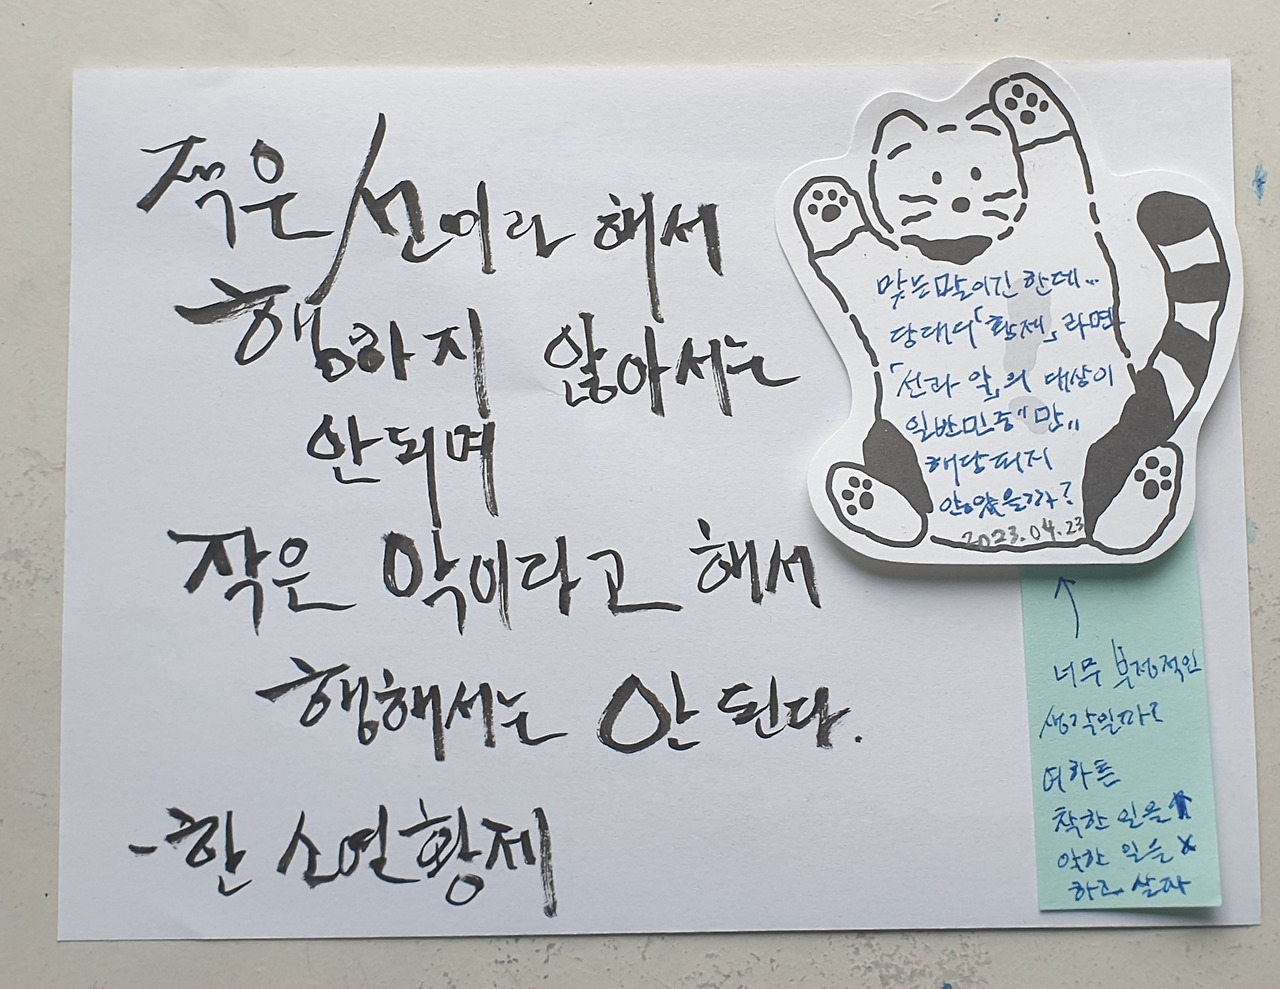 적은 선이라 해서
행하지 않아서는
안되며
작은 악이라고 해서
행해서는 안 된다.
- 한 소열황제
맞는말이긴 한데...
당대의 「황제」라면
「선과 악」의 대상이
일반민중"만"
해당되지
않았을까?
2023.04.23
↑
너무 부정적인
생각일까?
여하튼
착한 일을 ↑
악한 일을 X
하고 살자